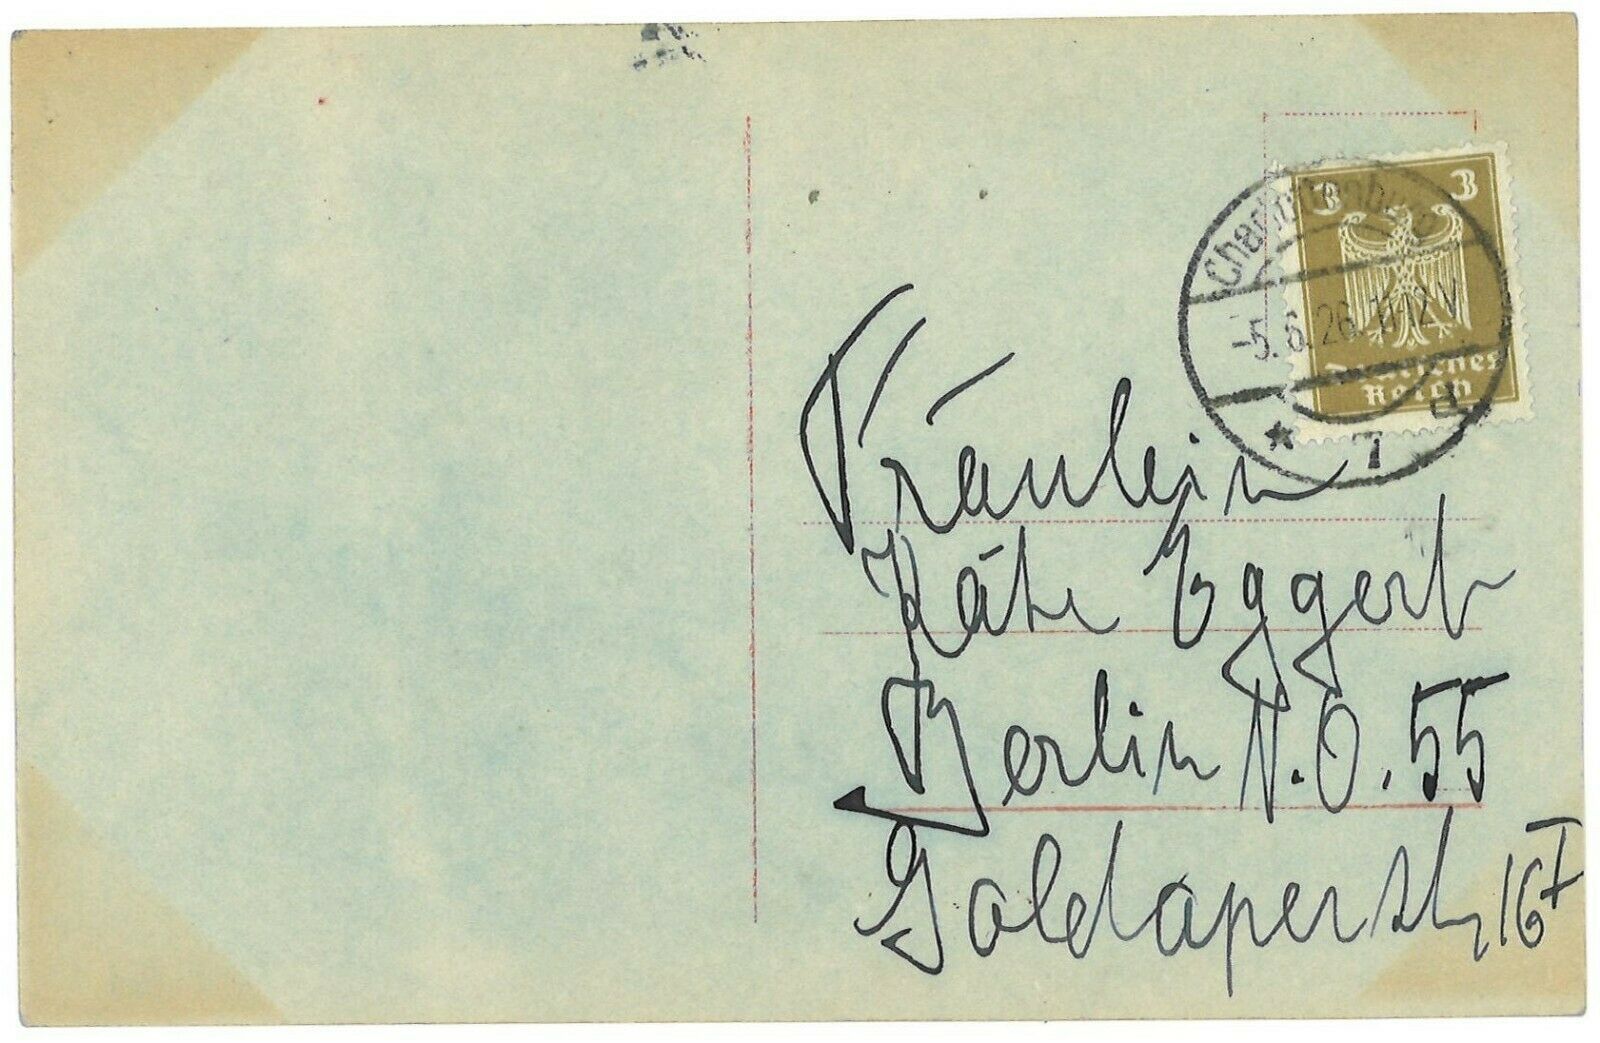 3 3
Charlottenburg
-5.6.26. 11-12 V
Deutsches
Reich
* 1 d
Fräulein
Käte Eggert
Berlin N.O. 55
Goldaperstr 16 I